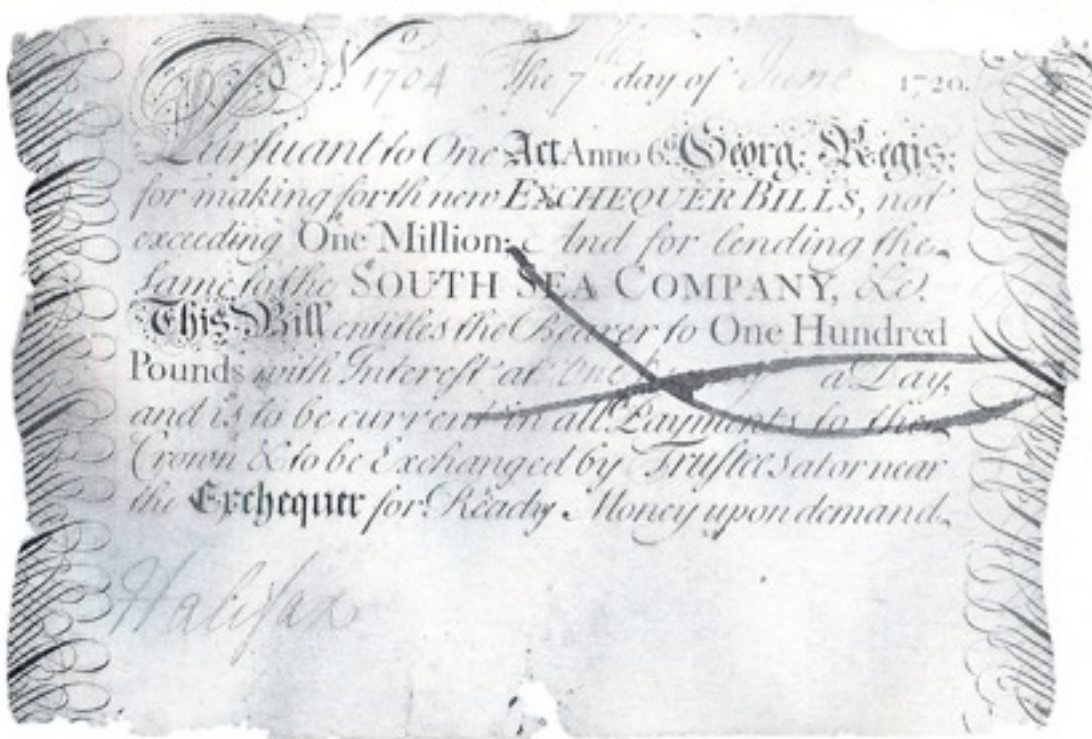 No 1704 The 7th day of June 1720.
Pursuant to One Act Anno 6o. Georg: Regis:
for making forth new EXCHEQUER BILLS, not
exceeding One Million; And for lending the
same to the SOUTH SEA COMPANY, &c.
This Bill entitles the Bearer to One Hundred
Pounds with Interest at One a Day,
and is to be current in all Payments to the
Crown & to be Exchanged by Trustees at or near
the Exchequer for Ready Money upon demand.
Halifax